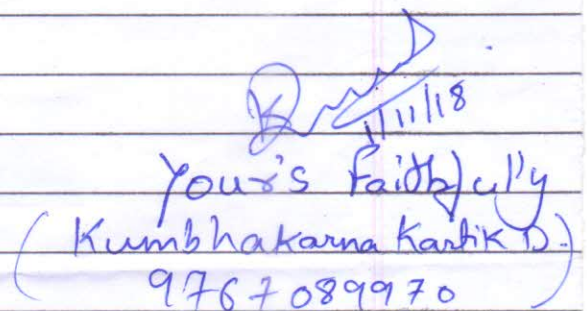 1/11/18
Your's Faithfully
(Kumbhakarna Kartik D.)
9767089970